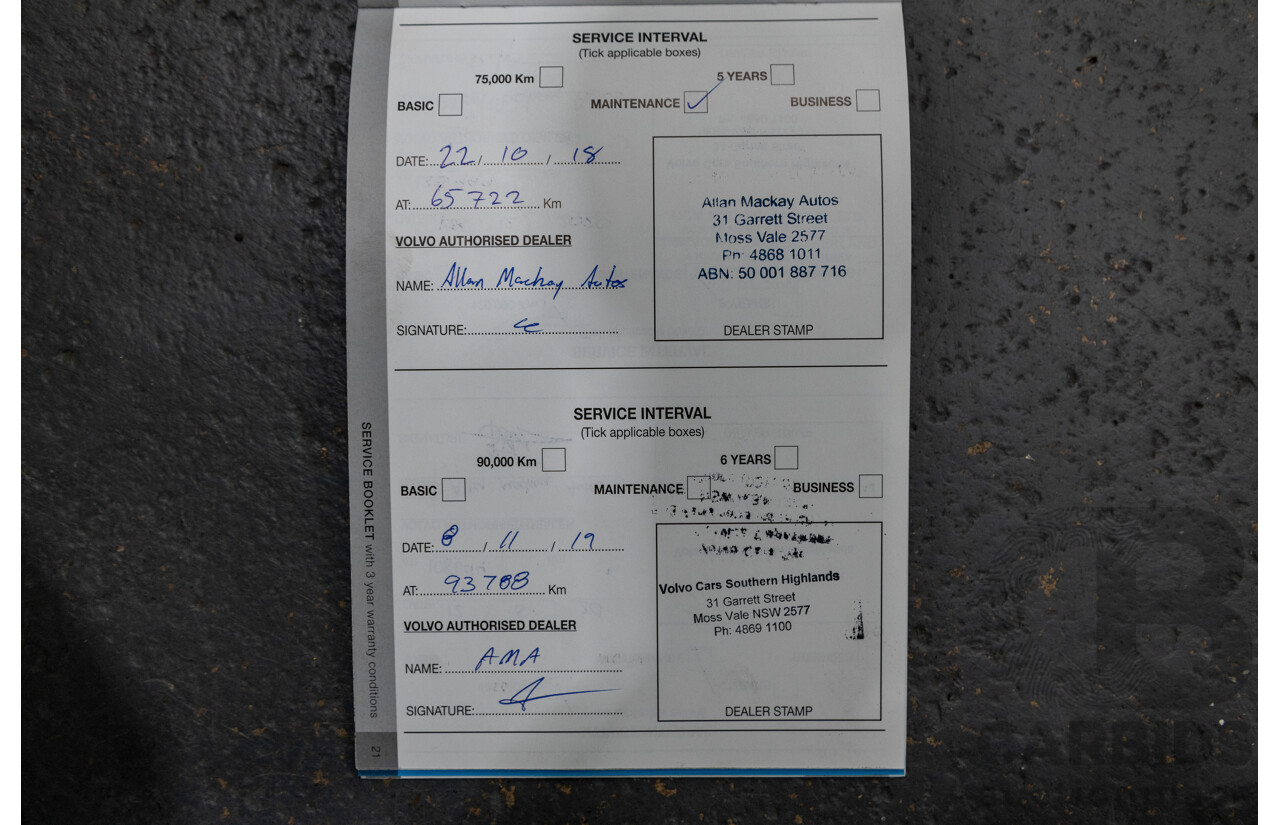 SERVICE INTERVAL
(Tick applicable boxes)
75,000 Km 5 YEARS
BASIC MAINTENANCE BUSINESS
DATE: 22 / 10 / 18
AT: 65722 Km
VOLVO AUTHORISED DEALER
NAME: Allan Mackay Autos
SIGNATURE:
Allan Mackay Autos
31 Garrett Street
Moss Vale 2577
Ph: 4868 1011
ABN: 50 001 887 716
DEALER STAMP
SERVICE INTERVAL
(Tick applicable boxes)
90,000 Km 6 YEARS
BASIC MAINTENANCE BUSINESS
DATE: 8 / 11 / 19
AT: 93708 Km
VOLVO AUTHORISED DEALER
NAME: AMA
SIGNATURE:
Volvo Cars Southern Highlands
31 Garrett Street
Moss Vale NSW 2577
Ph: 4869 1100
DEALER STAMP
SERVICE BOOKLET with 3 year warranty conditions
21
CARBIDS